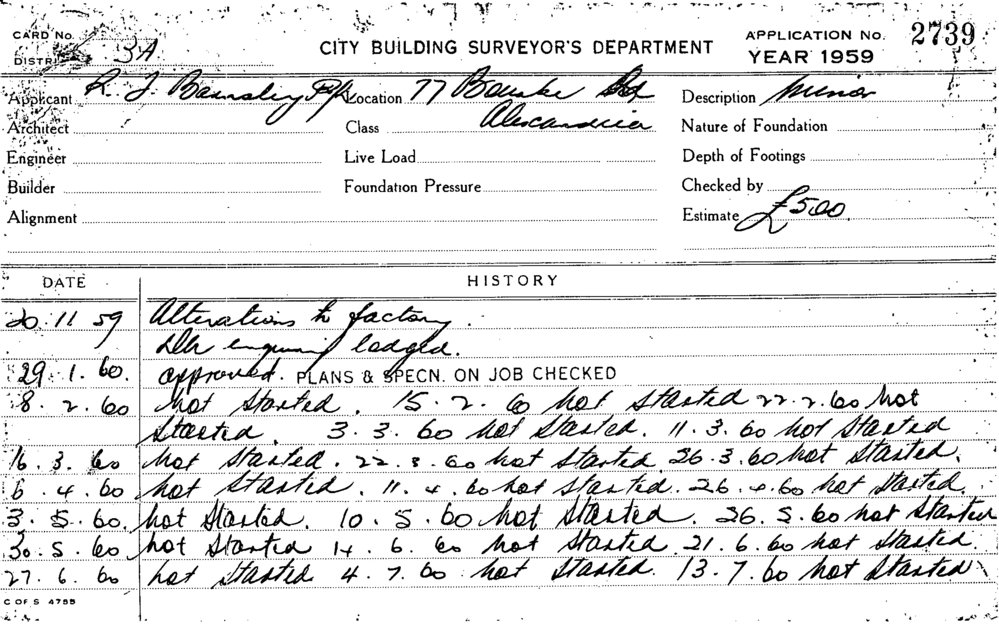 CARD No.
DISTRI 3A
CITY BUILDING SURVEYOR'S DEPARTMENT
APPLICATION No. 2739
YEAR 1959
Applicant R. J. P/L Location 77 Bourke Rd Description Minor
Architect Class Alexandria Nature of Foundation
Engineer Live Load Depth of Footings
Builder Foundation Pressure Checked by
Alignment Estimate £500.
DATE HISTORY
20.11 59 Alterations to factory.
lodged.
29.1.60. approved. PLANS & SPECN. ON JOB CHECKED
8.2.60 not started. 15.2.60 not started 22.2.60 not
started. 3.3.60 not started. 11.3.60 not started
16.3.60 not started. 22.3.60 not started. 26.3.60 not started.
6.4.60 not started. 11.4.60 not started. 26.4.60 not started.
3.5.60. not started. 10.5.60 not started. 26.5.60 not started
30.5.60 not started 14.6.60 not started. 21.6.60 not started.
27.6.60 not started 4.7.60 not started. 13.7.60 not started
C OF S 4755